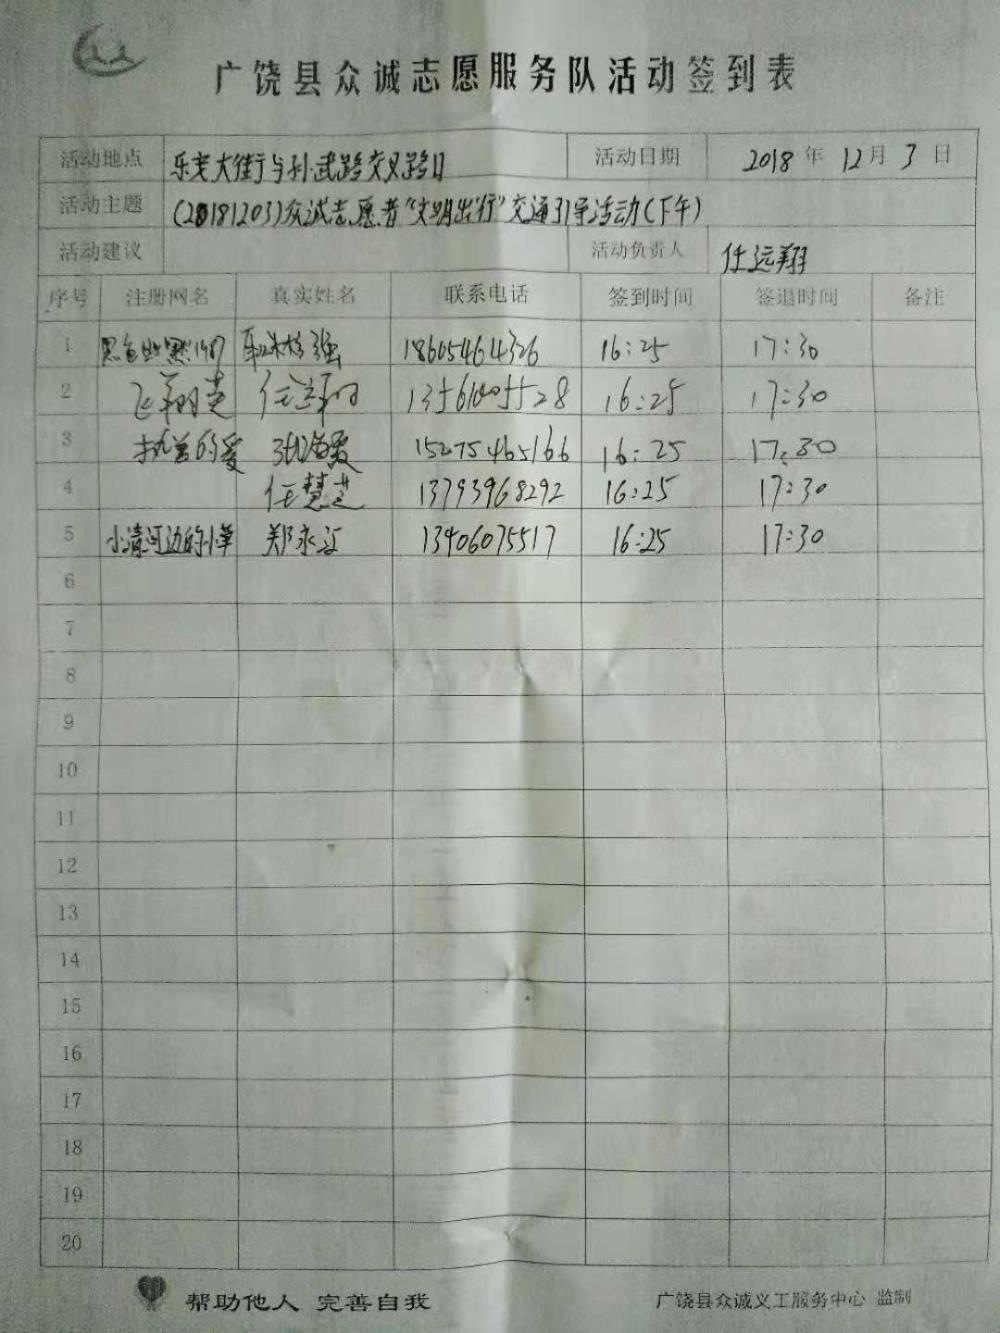 广饶县众诚志愿服务队活动签到表
活动地点 乐安大街与孙武路交叉路口 活动日期 2018年12月3日
活动主题 (20181203)众诚志愿者“文明出行”交通引导活动(下午)
活动建议 活动负责人 任远翔
序号 注册网名 真实姓名 联系电话 签到时间 签退时间 备注
1 18605464326 16:25 17:30
2 13561005528 16:25 17:30
3 执着的爱 15275465166 16:25 17:30
4 任慧芝 13793968292 16:25 17:30
5 小清河边的小草 郑永江 13406075517 16:25 17:30
6
7
8
9
10
11
12
13
14
15
16
17
18
19
20
帮助他人 完善自我 广饶县众诚义工服务中心 监制